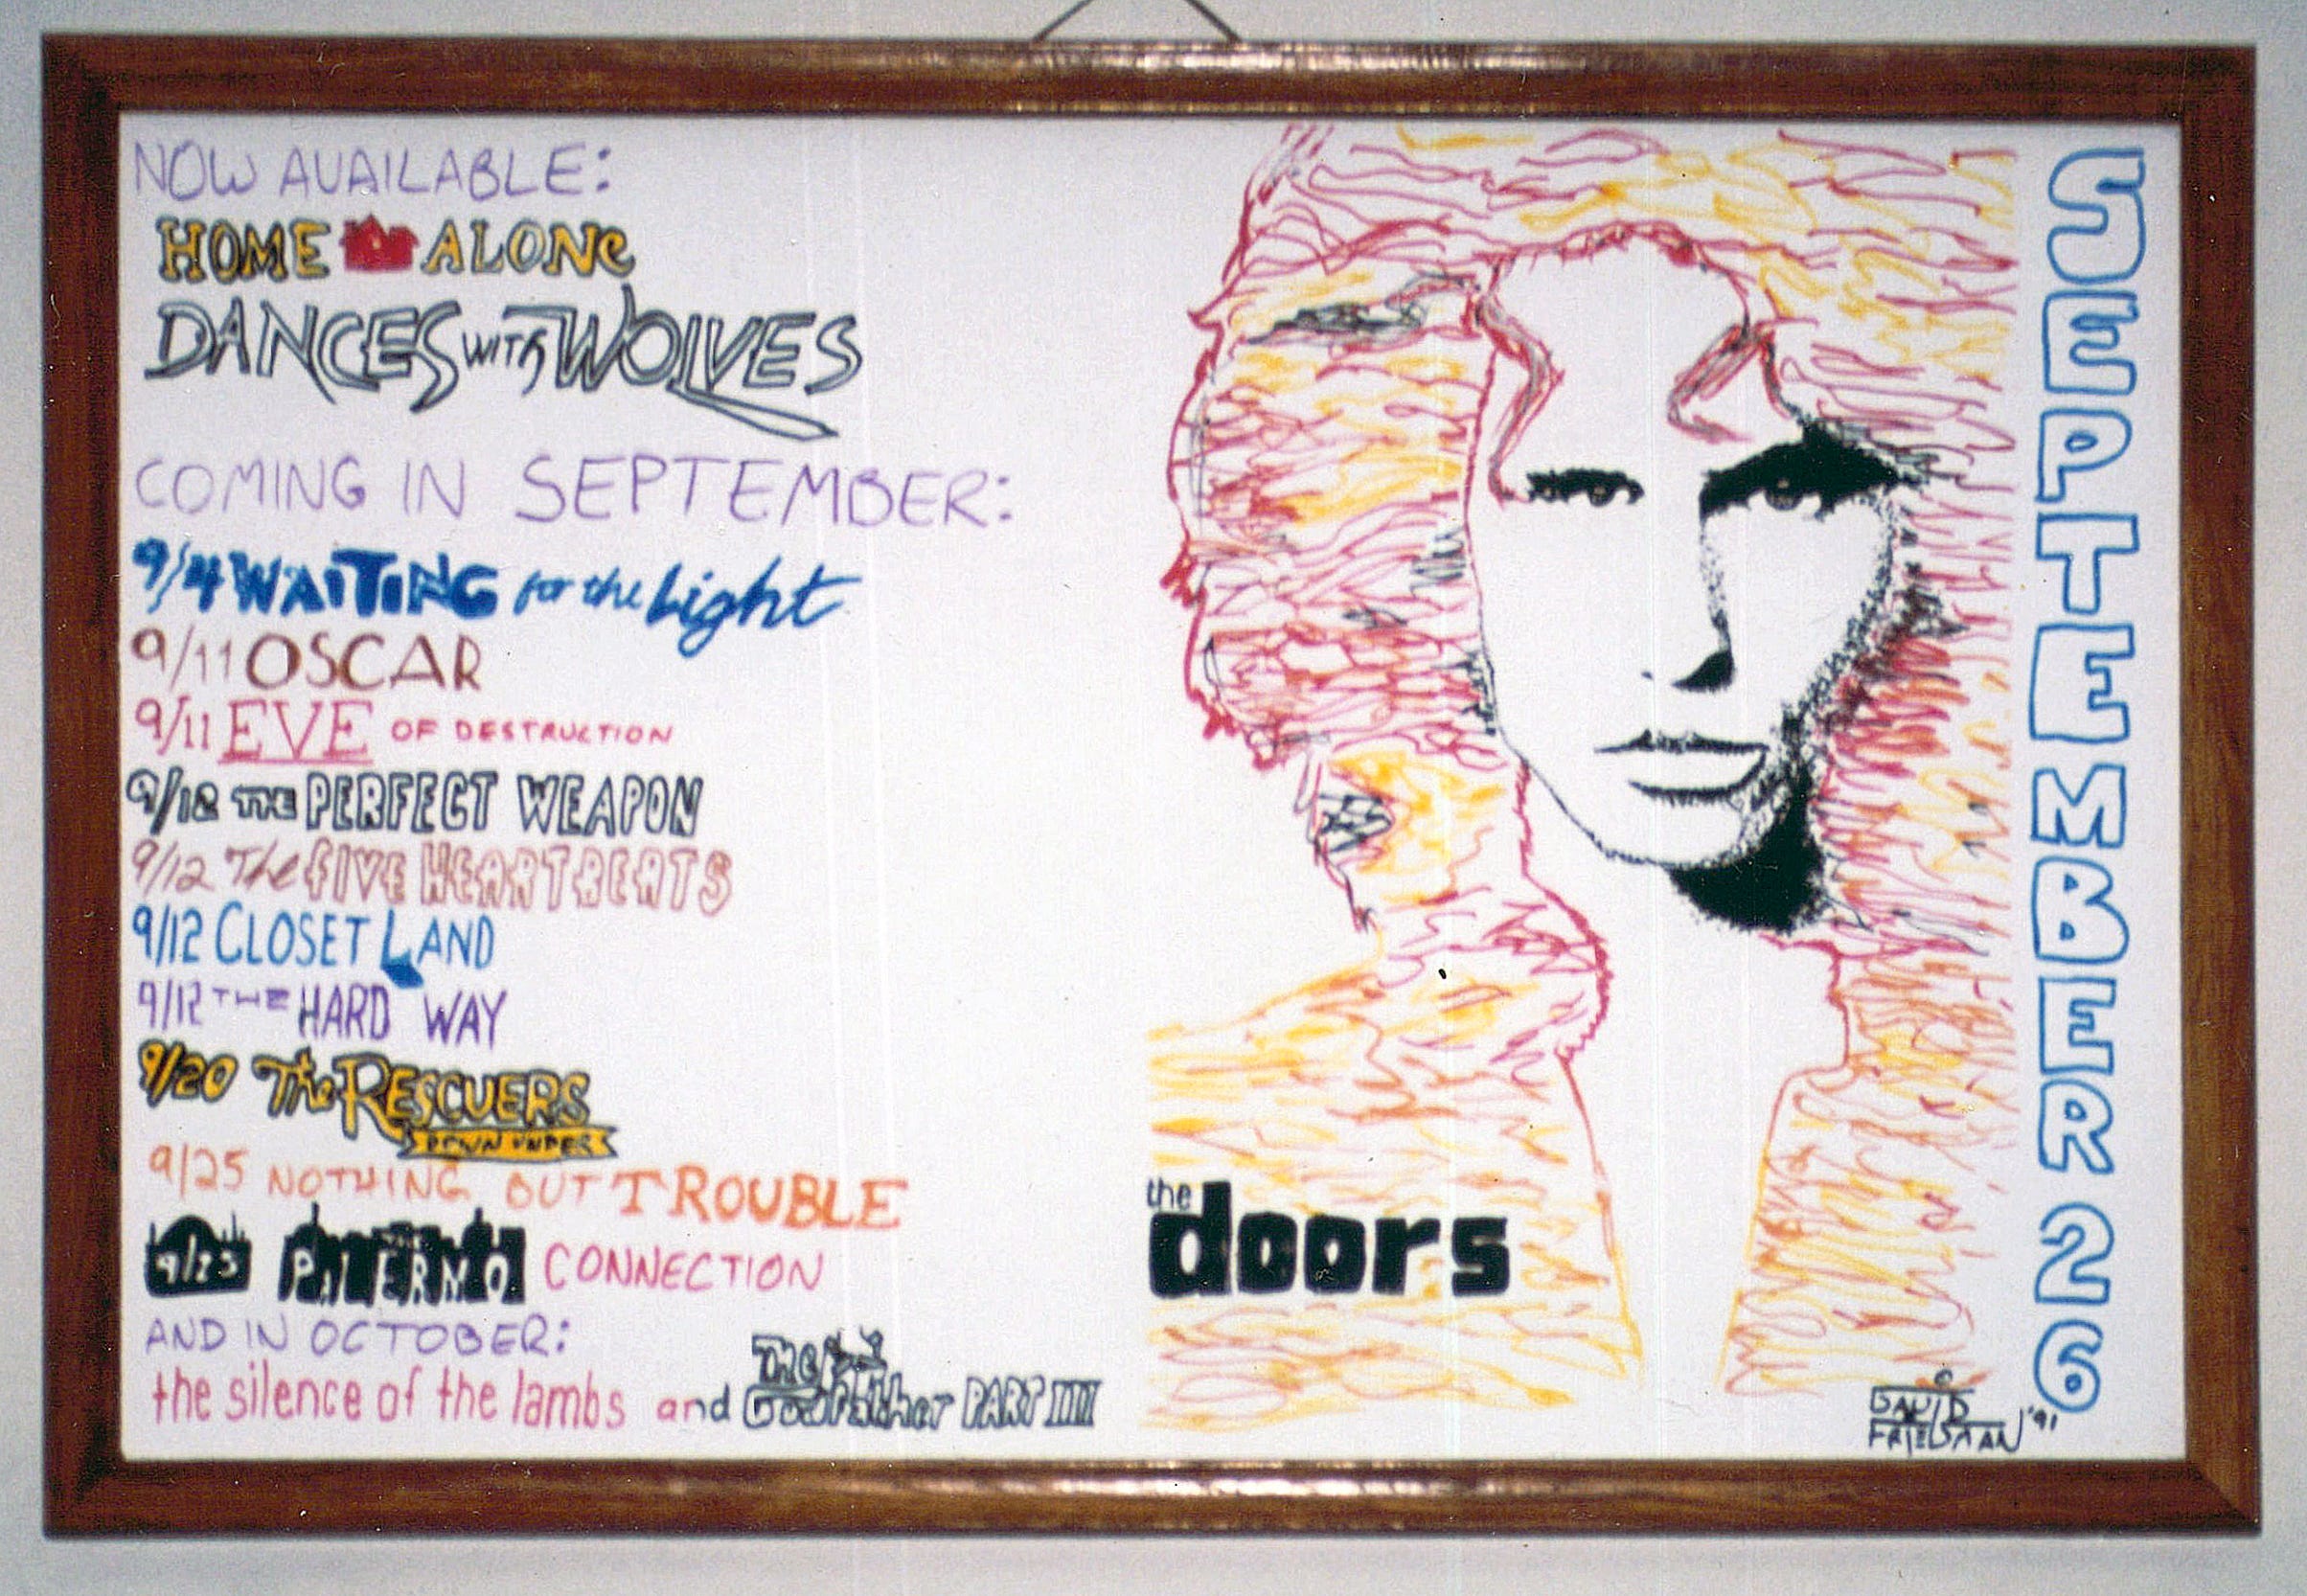 NOW AVAILABLE:
HOME ALONe
DANCES WITH WOLVES
COMING IN SEPTEMBER:
9/4 WAITING for the Light
9/11 OSCAR
9/11 EVE OF DESTRUCTION
9/12 THE PERFECT WEAPON
9/12 The FIVE HEARTBEATS
9/12 CLOSET LAND
9/12 THE HARD WAY
9/20 The RESCUERS
DOWN UNDER
9/25 NOTHING BUT TROUBLE
PALERMO CONNECTION
AND IN OCTOBER:
the silence of the lambs and THE Godfather PART III
the
doors
SEPTEMBER 26
© DAVID
FRIEDMAN '91